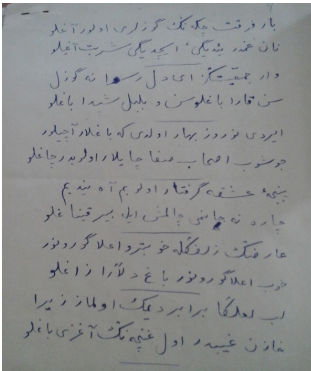 بار فرقت چکه نک گوزلری اولور آغلو
نان غمدر یدیگی ایچدیگی شربت آغیلو
وار حقیقتگر ای دل رسوا نه گوزل
سن قارا باغلوسن و بلبل شیدا باغلو
ایردی نوروز بهار اولدی که باغلار آچیلور
جوشوب اصحاب صفا چایلار اولدیدر چاغلو
پنجهٔ عشقه گرفتار اولوم آه بندیم
چاره نه چالمش ایله بیر قیناغلو
عارضنگ زلفگله خوبترو اعلا گورونور
خوب اعلا گورونور باغ دلآرا زاغلو
لب لعلگا برابر دیمک اولماز زیرا
خازن غیبدر اول غنچه نک آغزی باغلو